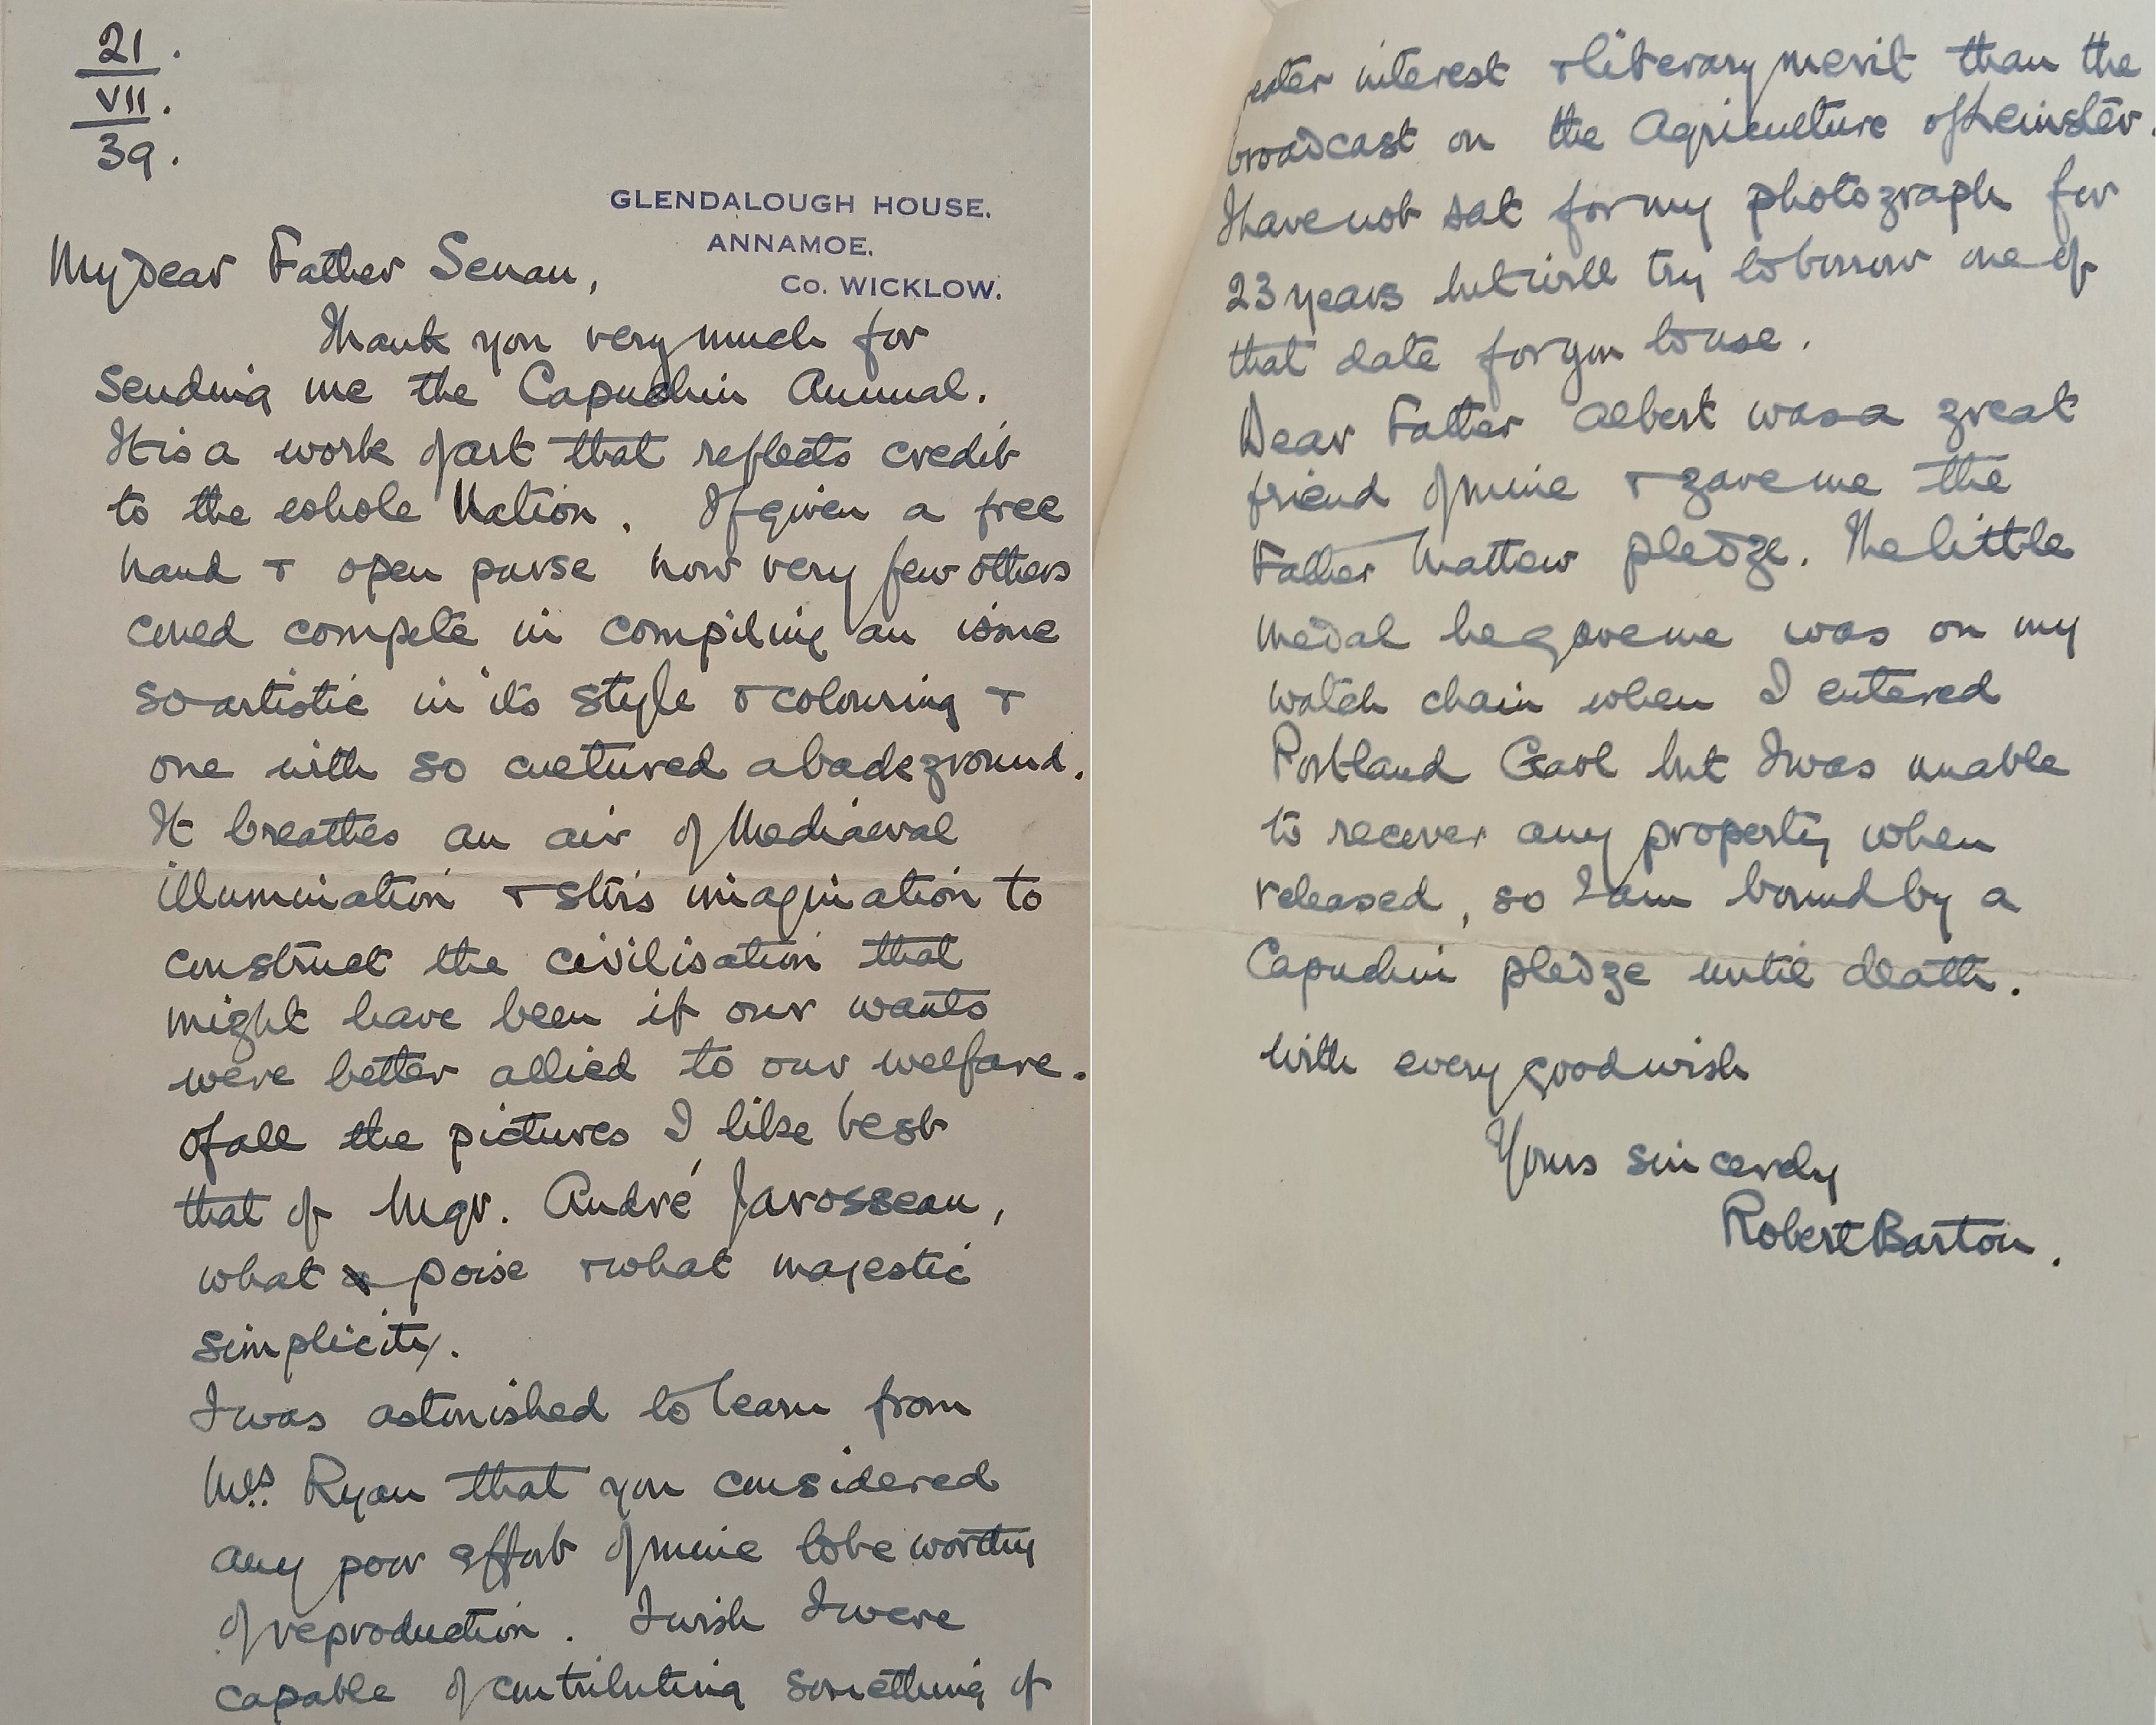 21.
VII.
39.
GLENDALOUGH HOUSE.
ANNAMOE.
Co. WICKLOW.
My dear Father Senan,
Thank you very much for
sending me the Capuchin Annual.
It is a work of art that reflects credit
to the whole Nation. If given a free
hand & open purse how very few others
coued compete in compiling an issue
so artistic in its style & colouring &
one with so cultured a background.
It breathes an air of Mediaeval
illumination & stirs imagination to
construct the civilisation that
might have been if our wants
were better allied to our welfare.
Of all the pictures I like best
that of Mgr. André Jarosseau,
what poise & what majestic
simplicity.
I was astonished to learn from
Mrs. Ryan that you considered
any poor effort of mine to be worthy
of reproduction. I wish I were
capable of contributing something of
eater interest & literary merit than the
broadcast on the Agriculture of Leinster.
I have not sat for my photograph for
23 years but will try to borrow one of
that date for you to use.
Dear Father Albert was a great
friend of mine & gave me the
Father Mattew pledge. The little
medal he gave me was on my
watch chain when I entered
Portland Gaol but I was unable
to recover any property when
released, so I am bound by a
Capuchin pledge until death.
With every good wish
Yours sincerely
Robert Barton.